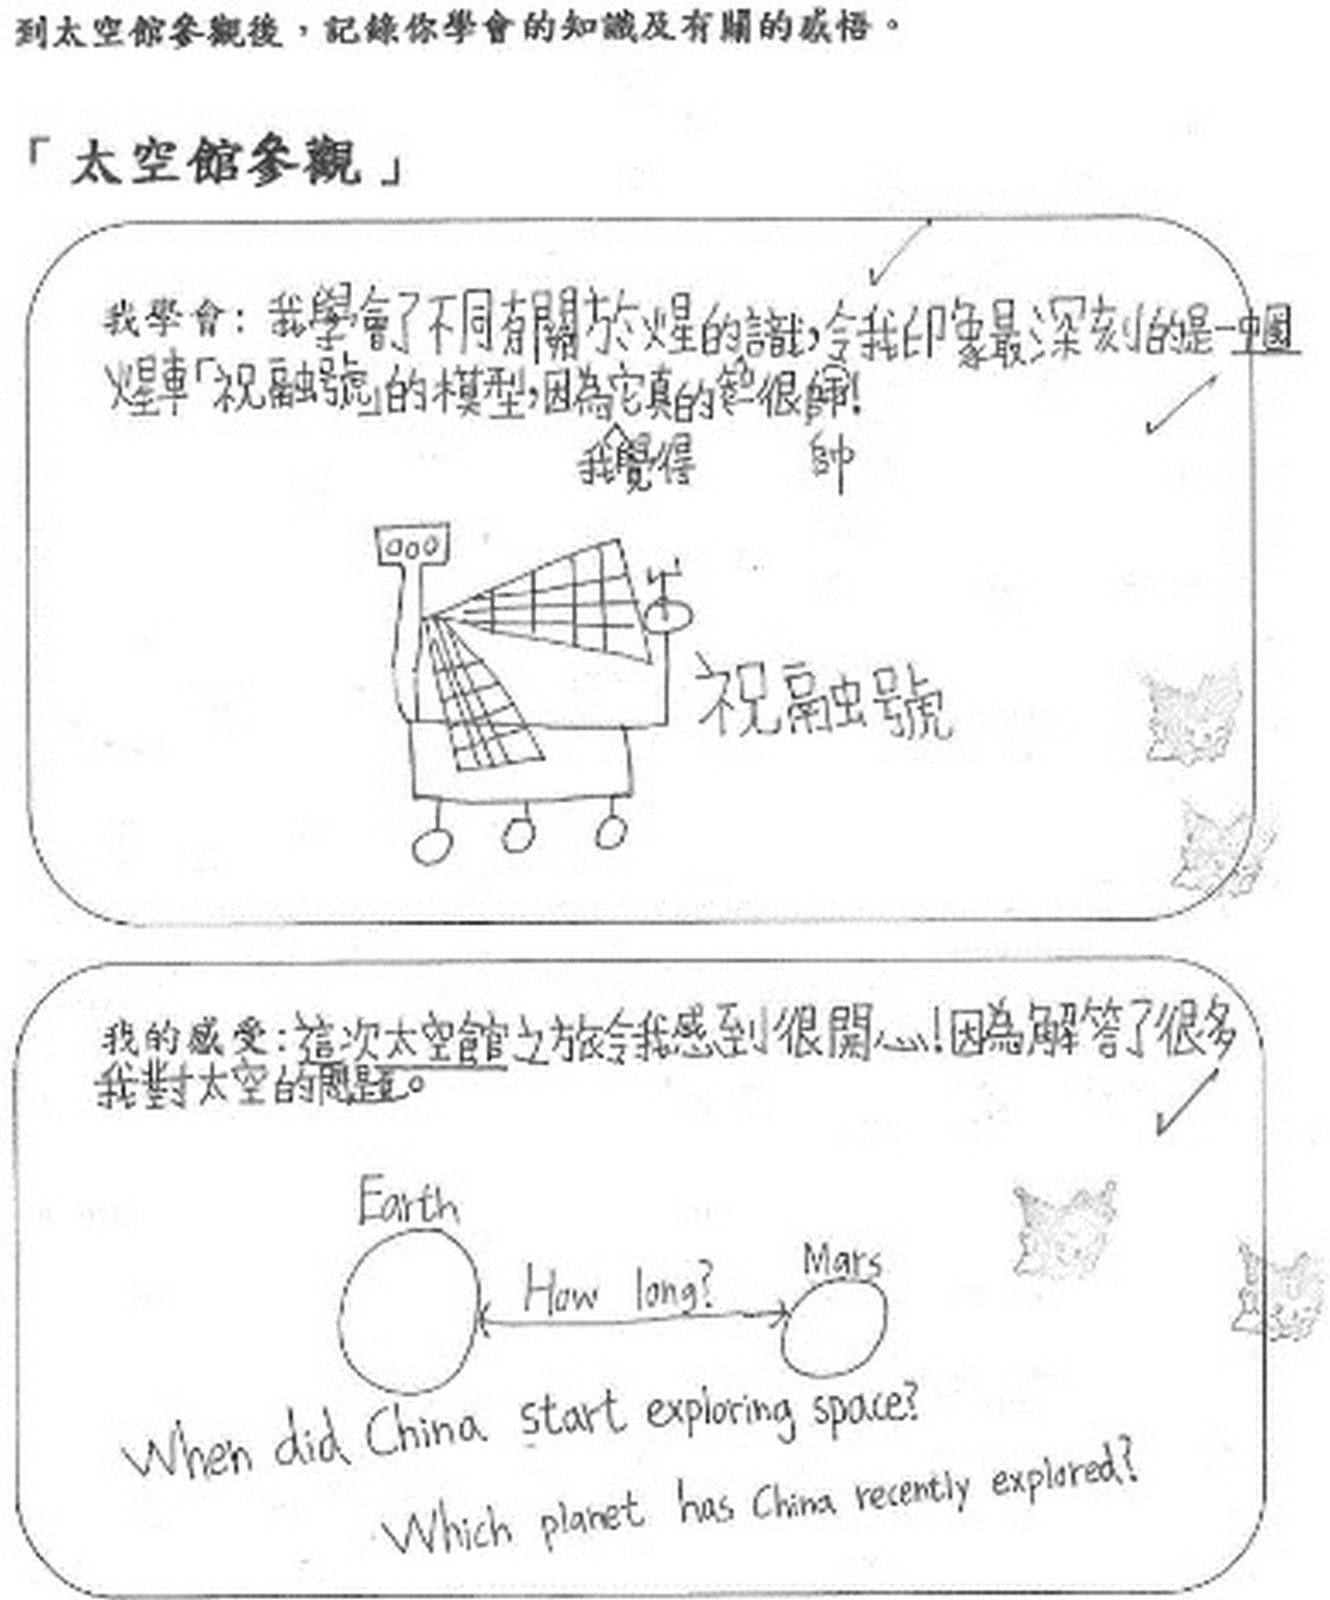 到太空館參觀後，記錄你學會的知識及有關的感悟。
「太空館參觀」
我學會：我學會了不同有關於火星的識，令我印象最深刻的是一中國
火星車「祝融號」的模型，因為它真的很師！
我覺得
帥
祝融號
我的感受：這次太空館之旅令我感到很開心！因為解答了很多
我對太空的問題。
Earth
Mars
How long?
When did China start exploring space?
Which planet has China recently explored?